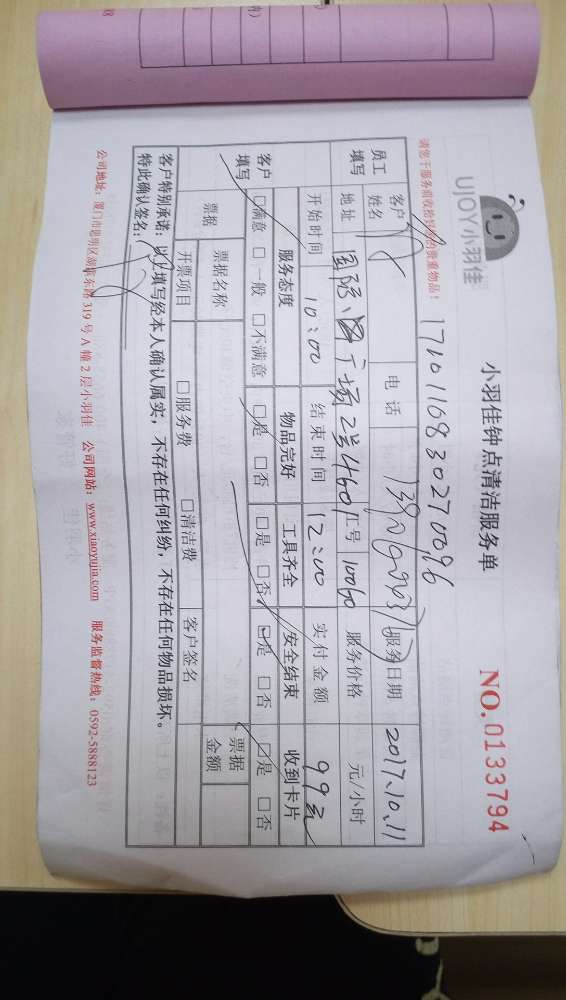 UJOY小羽佳
小羽佳钟点清洁服务单
NO.0133794
请您于服务前收拾好您的贵重物品！
员工填写
客户姓名
电话
服务日期 2017.10.11
地址 国际 广场 2 460
工号 10060
服务价格 元/小时
开始时间 10:00
结束时间 12:00
实付金额 99元
客户填写
服务态度 物品完好 工具齐全 安全结束 收到卡片
□满意 □一般 □不满意 □是 □否 □是 □否 □是 □否 □是 □否
票据
票据名称
票据金额
开票项目 □服务费 □清洁费 客户签名
客户特别承诺：以上填写经本人确认属实，不存在任何纠纷，不存在任何物品损坏。
特此确认签名：
公司地址：厦门市思明区湖滨东路319号A幢2层小羽佳 公司网站：www.xiaoyujia.com 服务监督热线：0592-5888123